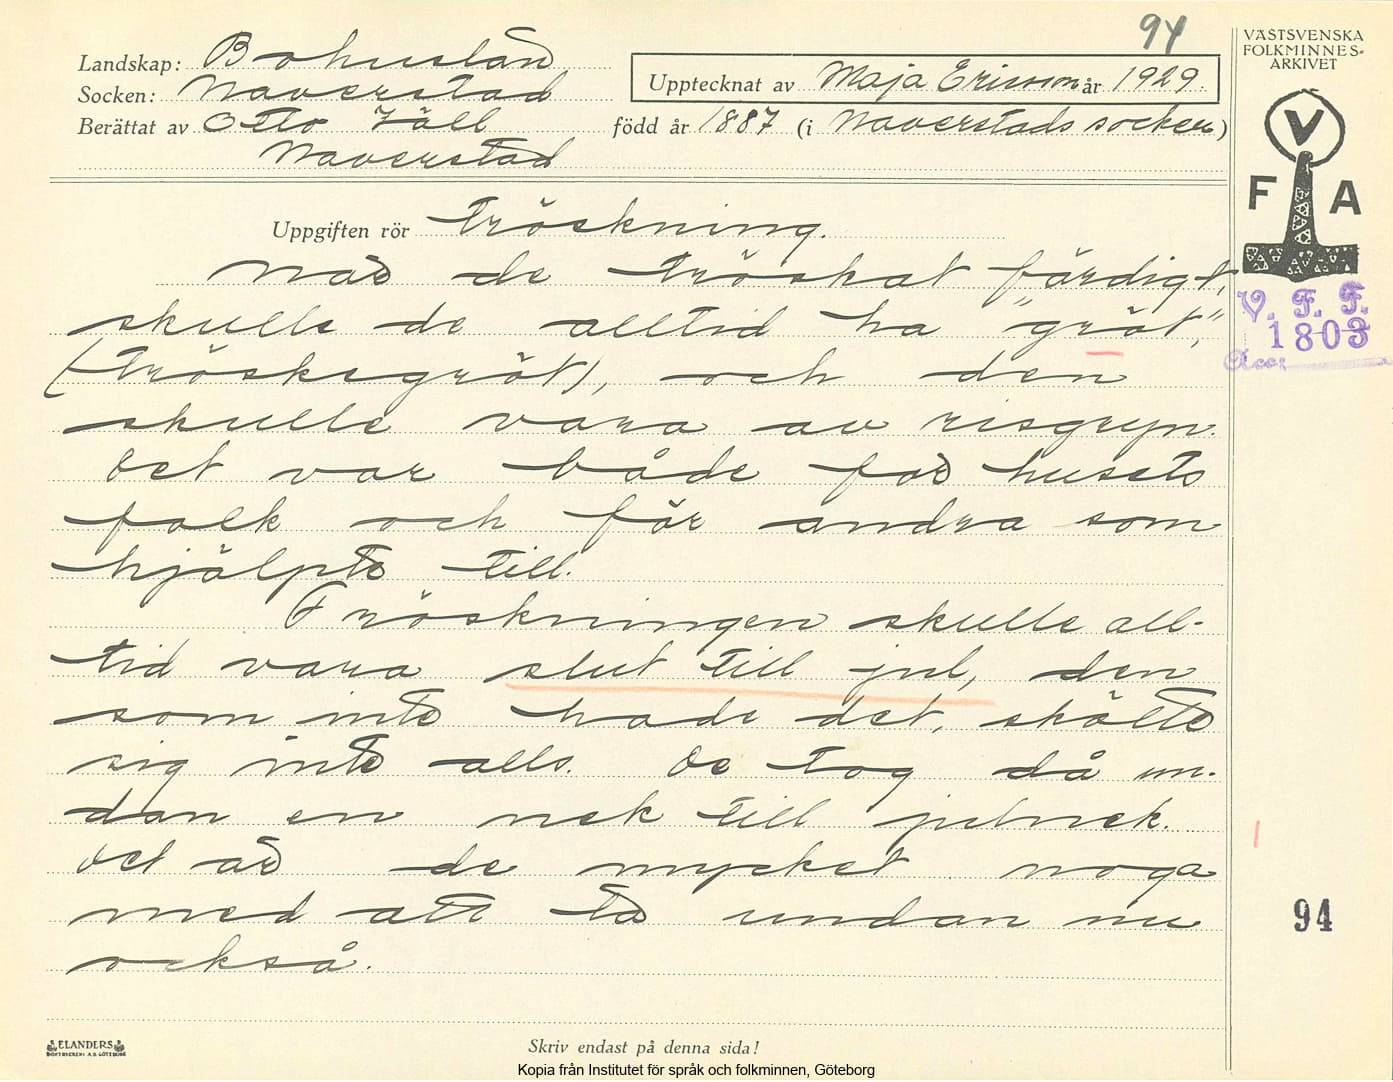 94
Landskap: Bohuslän
Socken: Naverstad
Upptecknat av Maja Ericson år 1929.
Berättat av Otto Häll
född år 1887 (i Naverstads socken)
Naverstad
Uppgiften rör Tröskning.
När de tröskat färdigt,
skulle de alltid ha "gröt",
(tröskegröt), och den
skulle vara av risgryn.
Det var både för husets
folk och för andra som
hjälpte till.
Tröskningen skulle all-
tid vara slut till jul, den
som inte hade det, skötte
sig inte alls. De tog då un-
dan en nek till julnek.
Det är de mycket noga
med att ta undan nu
också.
VÄSTSVENSKA
FOLKMINNES-
ARKIVET
V
F A
V. F. F.
1803
Acc:
94
ELANDERS
BOKTRYCKERI A.B. GÖTEBORG
Skriv endast på denna sida!
Kopia från Institutet för språk och folkminnen, Göteborg